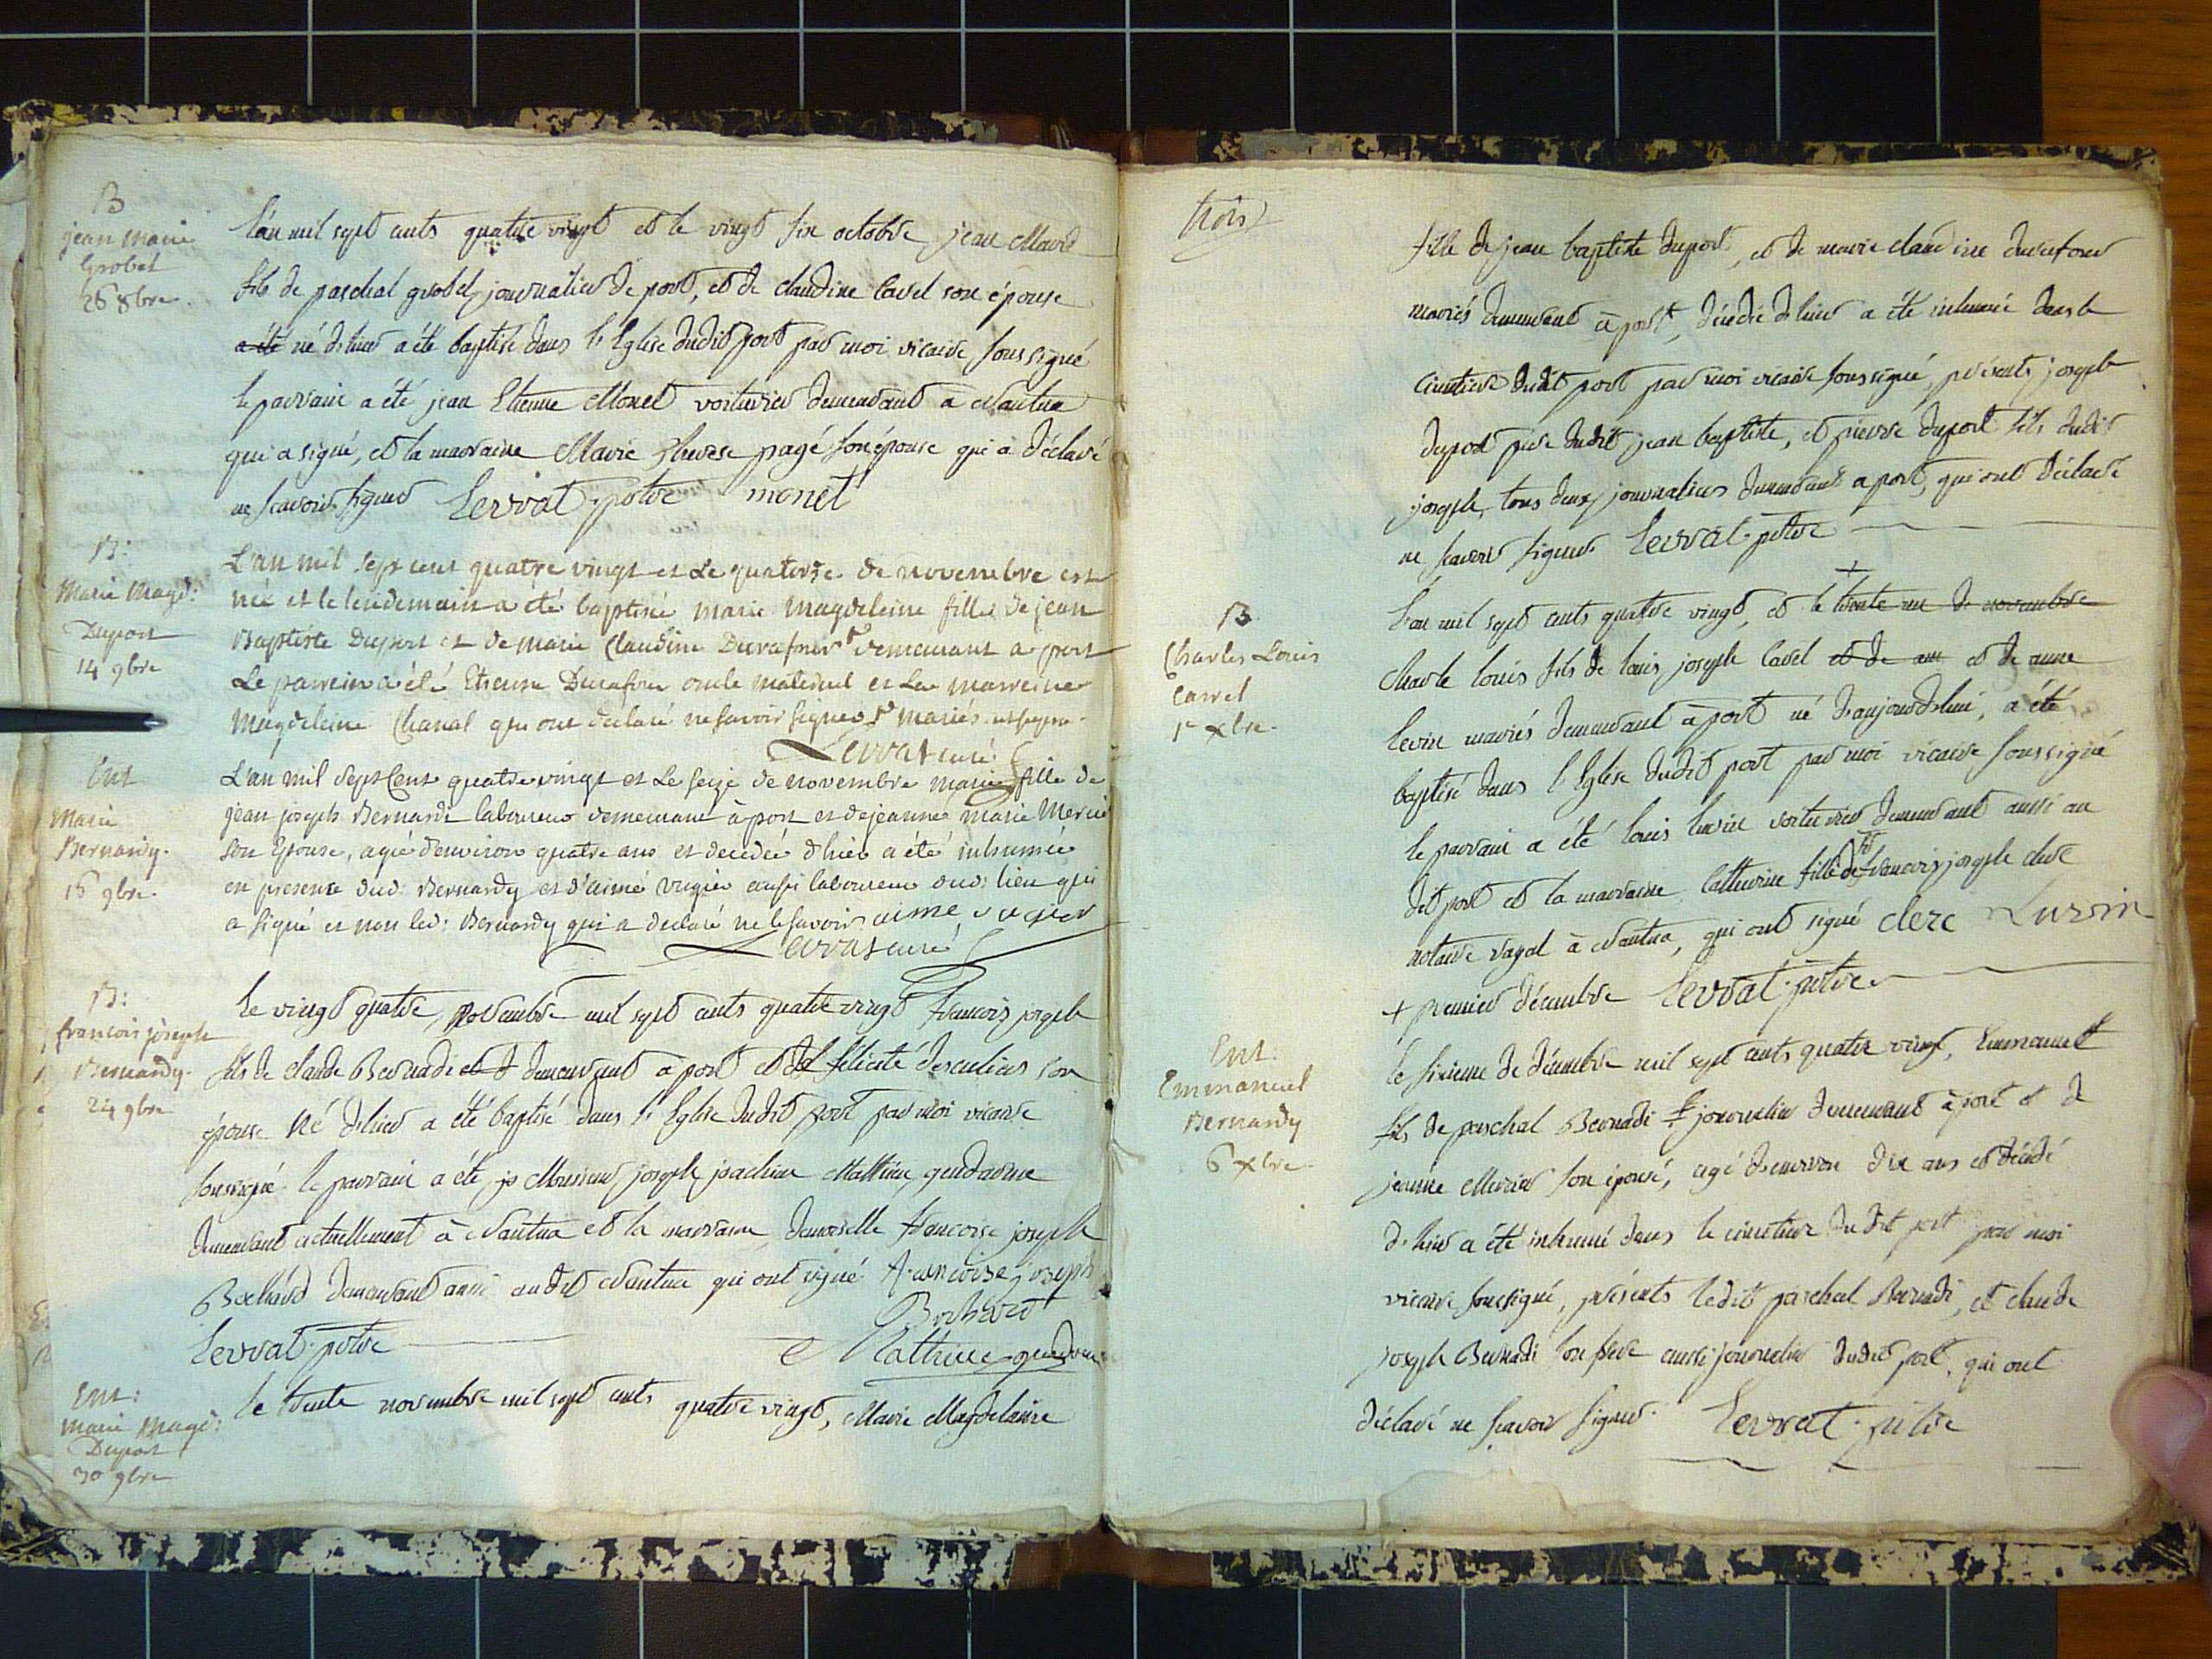 B
jean Marie
Grobet
26 8bre.
L'an mil sept cents quatre vingt et le vingt six octobre jean Marie
fils de paschal grobet journalier de port, et de claudine Cavel son épouse
a été né d'hier a été baptisé dans l'Eglise dudit port par moi vicaire soussigné
le parrain a été jean Etienne Monet voiturier demeurant a Nantua
qui a signé, et la marraine Marie Therese pagé son épouse qui a déclaré
ne scavoir signer Levrat ptre monet
B:
Marie Magd:
Duport
14 9bre
L'an mil sept cent quatre vingt et Le quatorze de novembre est
née et le lendemain a eté baptisée marie magdeleine fille de jean
Baptiste Duport et de marie Claudine Durafour demeurant a port
Le parrein a été Etienne Durafour oncle maternel et La marreine
Magdeleine Chanal qui ont declaré ne savoir signer mariés
Levrat curé
Ent
Marie
Bernardy.
16 9bre.
L'an mil Sept Cent quatre vingt et Le seize de novembre marie fille de
jean joseph Bernardi laboureur demeurant à port et de jeanne marie Mercier
son Epouse, agée d'environ quatre ans et decedée d'hier a été inhumée
en presence dud: Bernardy et d'aimé vugier aussi laboureur dud: lieu qui
a signé et non led: Bernardy qui a declaré ne le savoir aime vugier
Levrat curé
B:
francois joseph
Bernardy.
24 9bre
Le vingt quatre, novembre mil sept cents quatre vingt francois joseph
fils de claude Bernadi et d demeurant a port et de félicité desculies son
épouse né d'hier a été baptisé dans l'Eglise dudit port par moi vicaire
soussigné le parrain a été jo Monsieur joseph joachim Mathieu gendarme
demeurant actuellement à Nantua et la marraine demoiselle francoise joseph
Bochard demeurant aussi audit Nantua qui ont signé francoise joseph
Bochard
Levrat ptre Mathieu gendarme
Ent:
Marie Magd:
Duport
30 9bre
le trente novembre mil sept cents quatre vingt, Marie Magdelaine
trois
fille de jean baptiste duport, et de marie claudine durafour
mariés demeurant à port, décédée d'hier a été inhumée dans le
cimetiere dudit port par moi vicaire soussigné, présents joseph
duport pere dudit jean baptiste, et pierre duport fils dudit
joseph, tous deux journaliers demeurant a port, qui ont déclaré
ne scavoir signer Levrat ptre
B
Charles Louis
Carrel
1er Xbre.
+
L'an mil sept cents quatre vingt, et le trente un de novembre
Charle louis fils de louis joseph Cavel et de ann et de anne
levin mariés demeurant à port né d'aujourd'hui, a été
baptisé dans l'Eglise dudit port par moi vicaire soussigné
le parrain a été louis luvin voiturier demeurant aussi au
dit port et la marraine Catherine fille de francois joseph clerc
notaire royal à Nantua, qui ont signé clerc Luvrin
+ premier décembre Levrat ptre
Ent:
Emmanuel
Bernardy
6 Xbre
le sixieme de décembre mil sept cents quatre vingt, Emmanuel
fils de paschal Bernadi journalier demeurant à port et de
jeanne Mercier son épouse, agé d'environ dix ans et décédé
d'hier a été inhumé dans le cimetiere dudit port par moi
vicaire soussigné, présents ledit paschal Bernadi, et claude
joseph Bernadi son frere aussi journalier dudit port, qui ont
déclaré ne scavoir signer. Levrat ptre